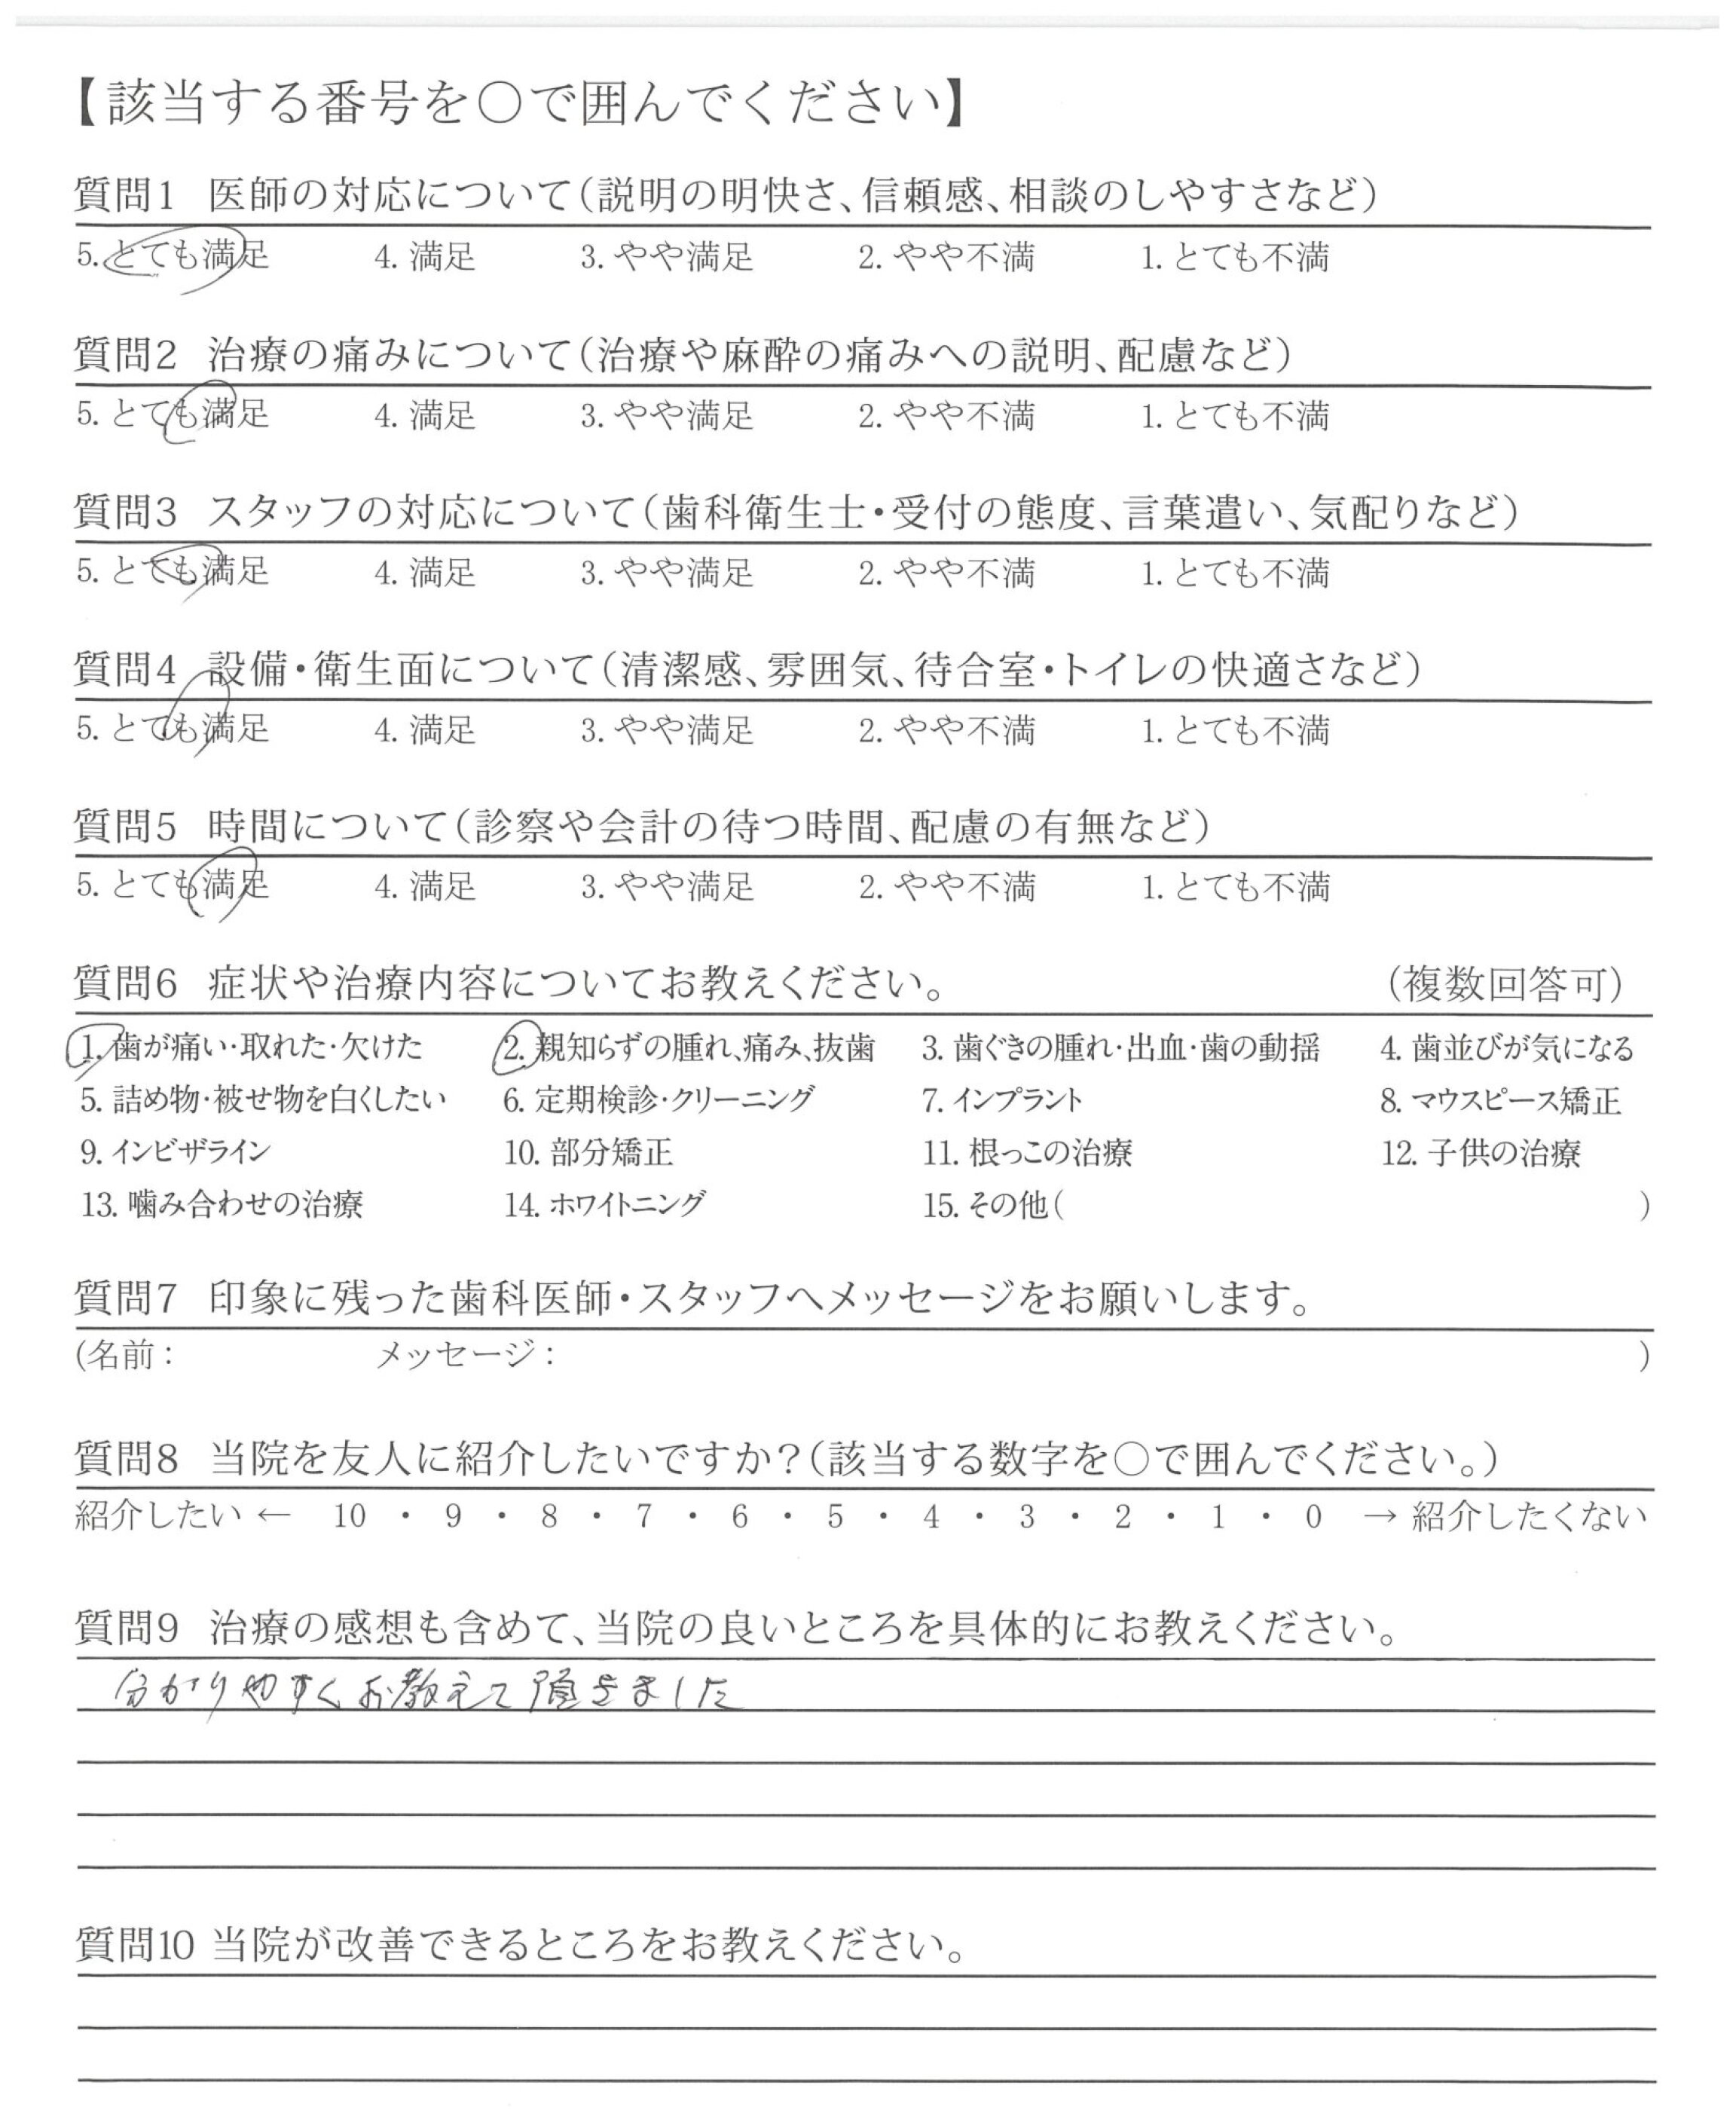 【該当する番号を〇で囲んでください】
質問1 医師の対応について(説明の明快さ、信頼感、相談のしやすさなど)
5. とても満足 4. 満足 3. やや満足 2. やや不満 1. とても不満
質問2 治療の痛みについて(治療や麻酔の痛みへの説明、配慮など)
5. とても満足 4. 満足 3. やや満足 2. やや不満 1. とても不満
質問3 スタッフの対応について(歯科衛生士・受付の態度、言葉遣い、気配りなど)
5. とても満足 4. 満足 3. やや満足 2. やや不満 1. とても不満
質問4 設備・衛生面について(清潔感、雰囲気、待合室・トイレの快適さなど)
5. とても満足 4. 満足 3. やや満足 2. やや不満 1. とても不満
質問5 時間について(診察や会計の待つ時間、配慮の有無など)
5. とても満足 4. 満足 3. やや満足 2. やや不満 1. とても不満
質問6 症状や治療内容についてお教えください。 (複数回答可)
1. 歯が痛い・取れた・欠けた 2. 親知らずの腫れ、痛み、抜歯 3. 歯ぐきの腫れ・出血・歯の動揺 4. 歯並びが気になる
5. 詰め物・被せ物を白くしたい 6. 定期検診・クリーニング 7. インプラント 8. マウスピース矯正
9. インビザライン 10. 部分矯正 11. 根っこの治療 12. 子供の治療
13. 噛み合わせの治療 14. ホワイトニング 15. その他( )
質問7 印象に残った歯科医師・スタッフへメッセージをお願いします。
(名前: メッセージ: )
質問8 当院を友人に紹介したいですか?(該当する数字を〇で囲んでください。)
紹介したい ← 10 ・ 9 ・ 8 ・ 7 ・ 6 ・ 5 ・ 4 ・ 3 ・ 2 ・ 1 ・ 0 → 紹介したくない
質問9 治療の感想も含めて、当院の良いところを具体的にお教えください。
分かりやすくお教えて頂きました
質問10 当院が改善できるところをお教えください。